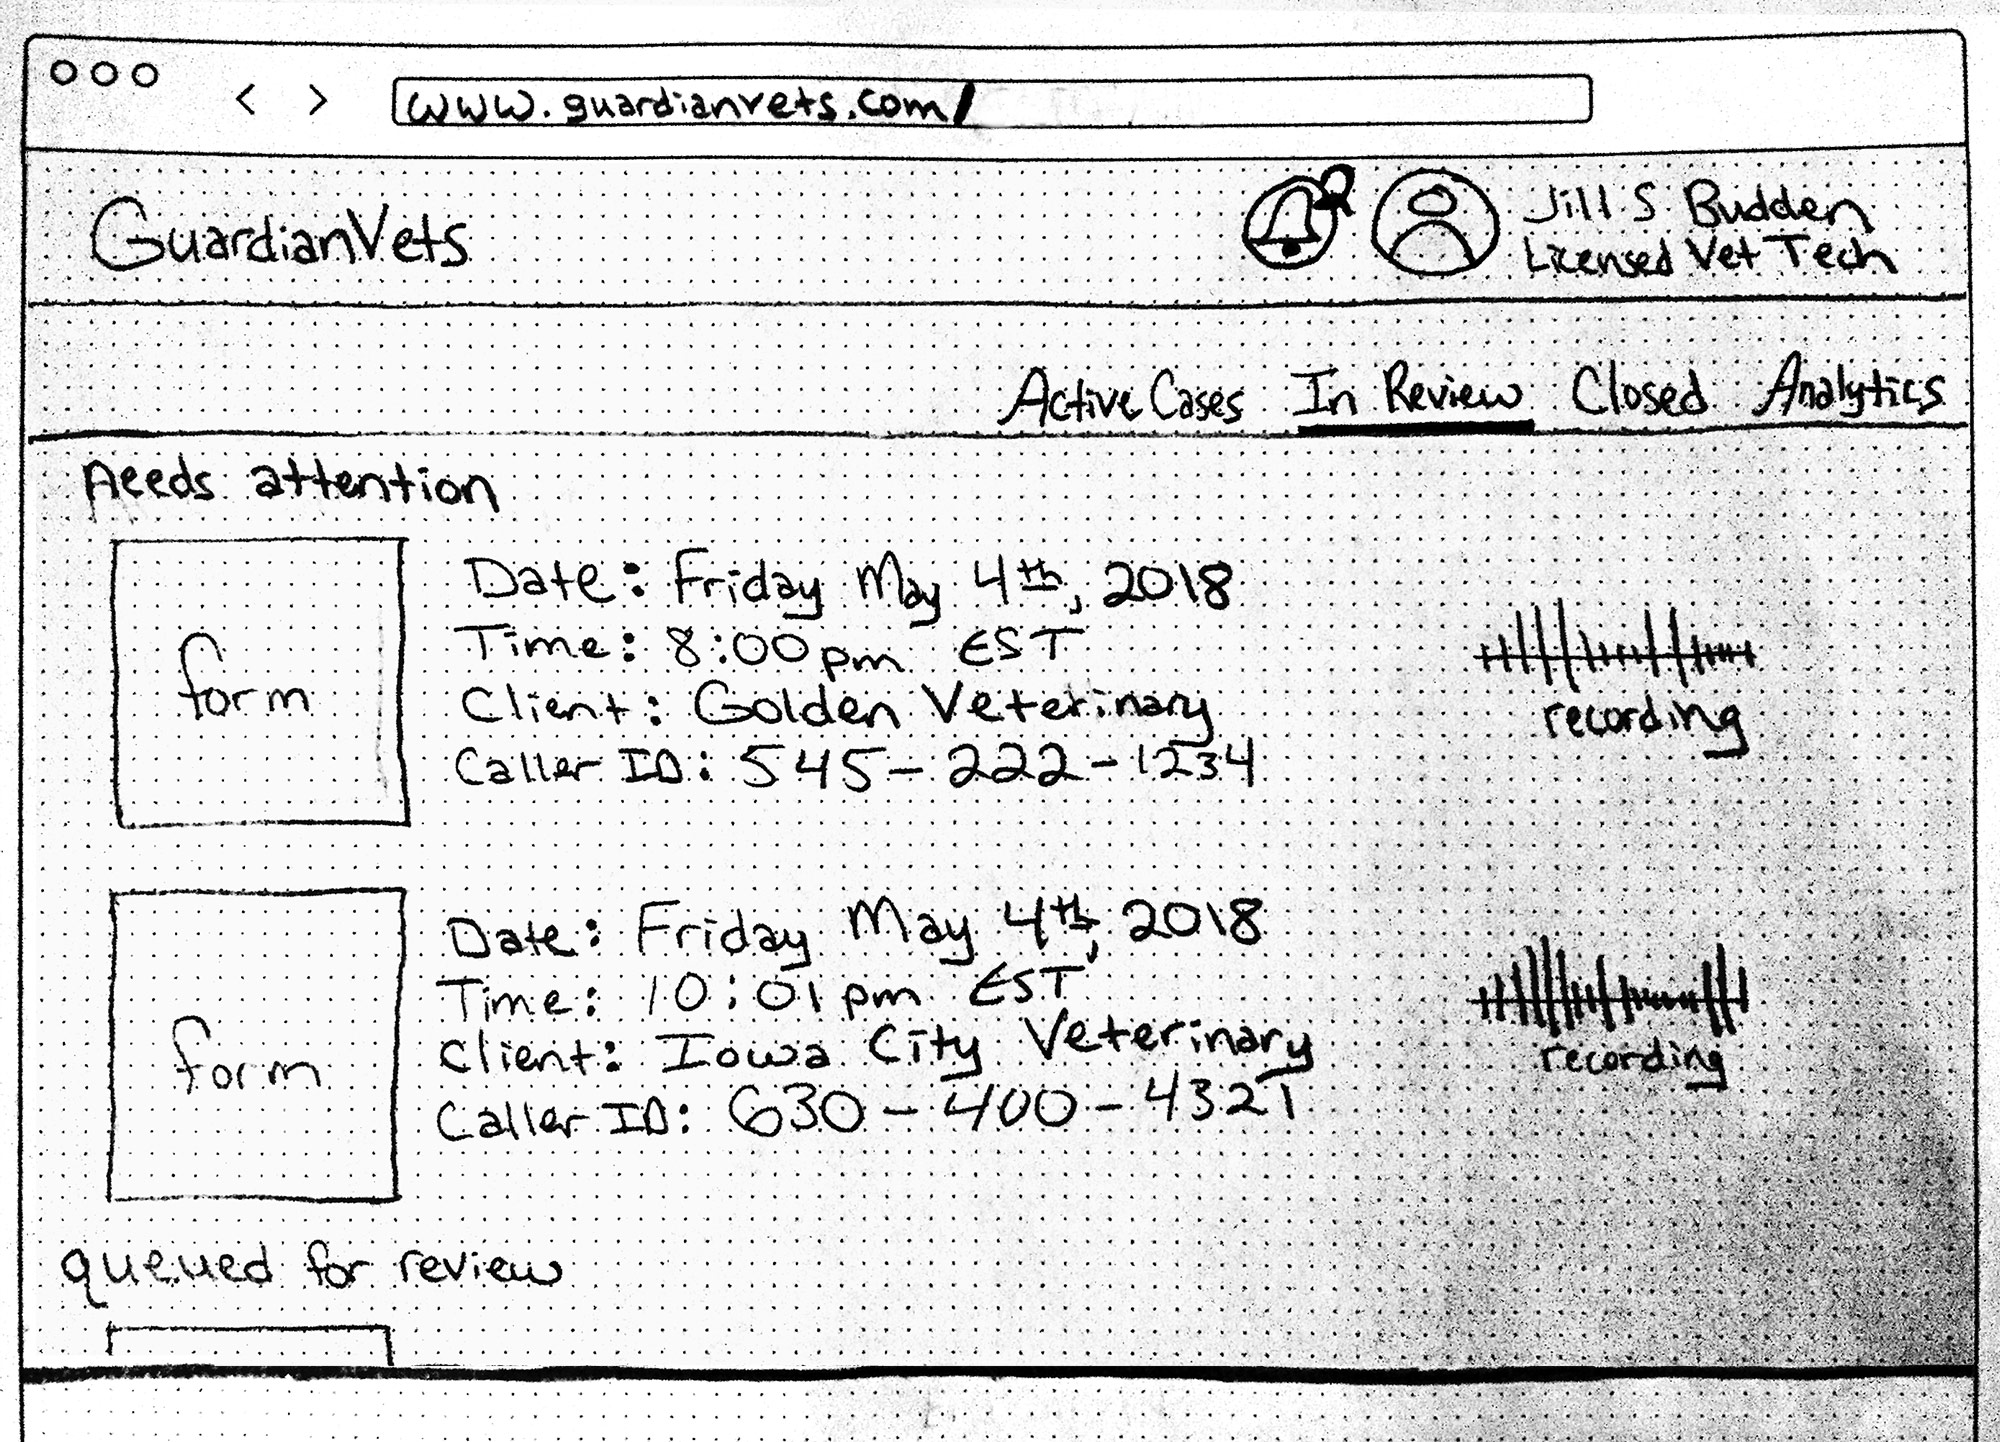 www.guardianvets.com/
GuardianVets
Jill S Budden
Licensed Vet Tech
Active Cases In Review Closed Analytics
Needs attention
form
Date: Friday May 4th, 2018
Time: 8:00pm EST
Client: Golden Veterinary
Caller ID: 545-222-1234
recording
form
Date: Friday May 4th, 2018
Time: 10:01pm EST
Client: Iowa City Veterinary
Caller ID: 630-400-4321
recording
queued for review